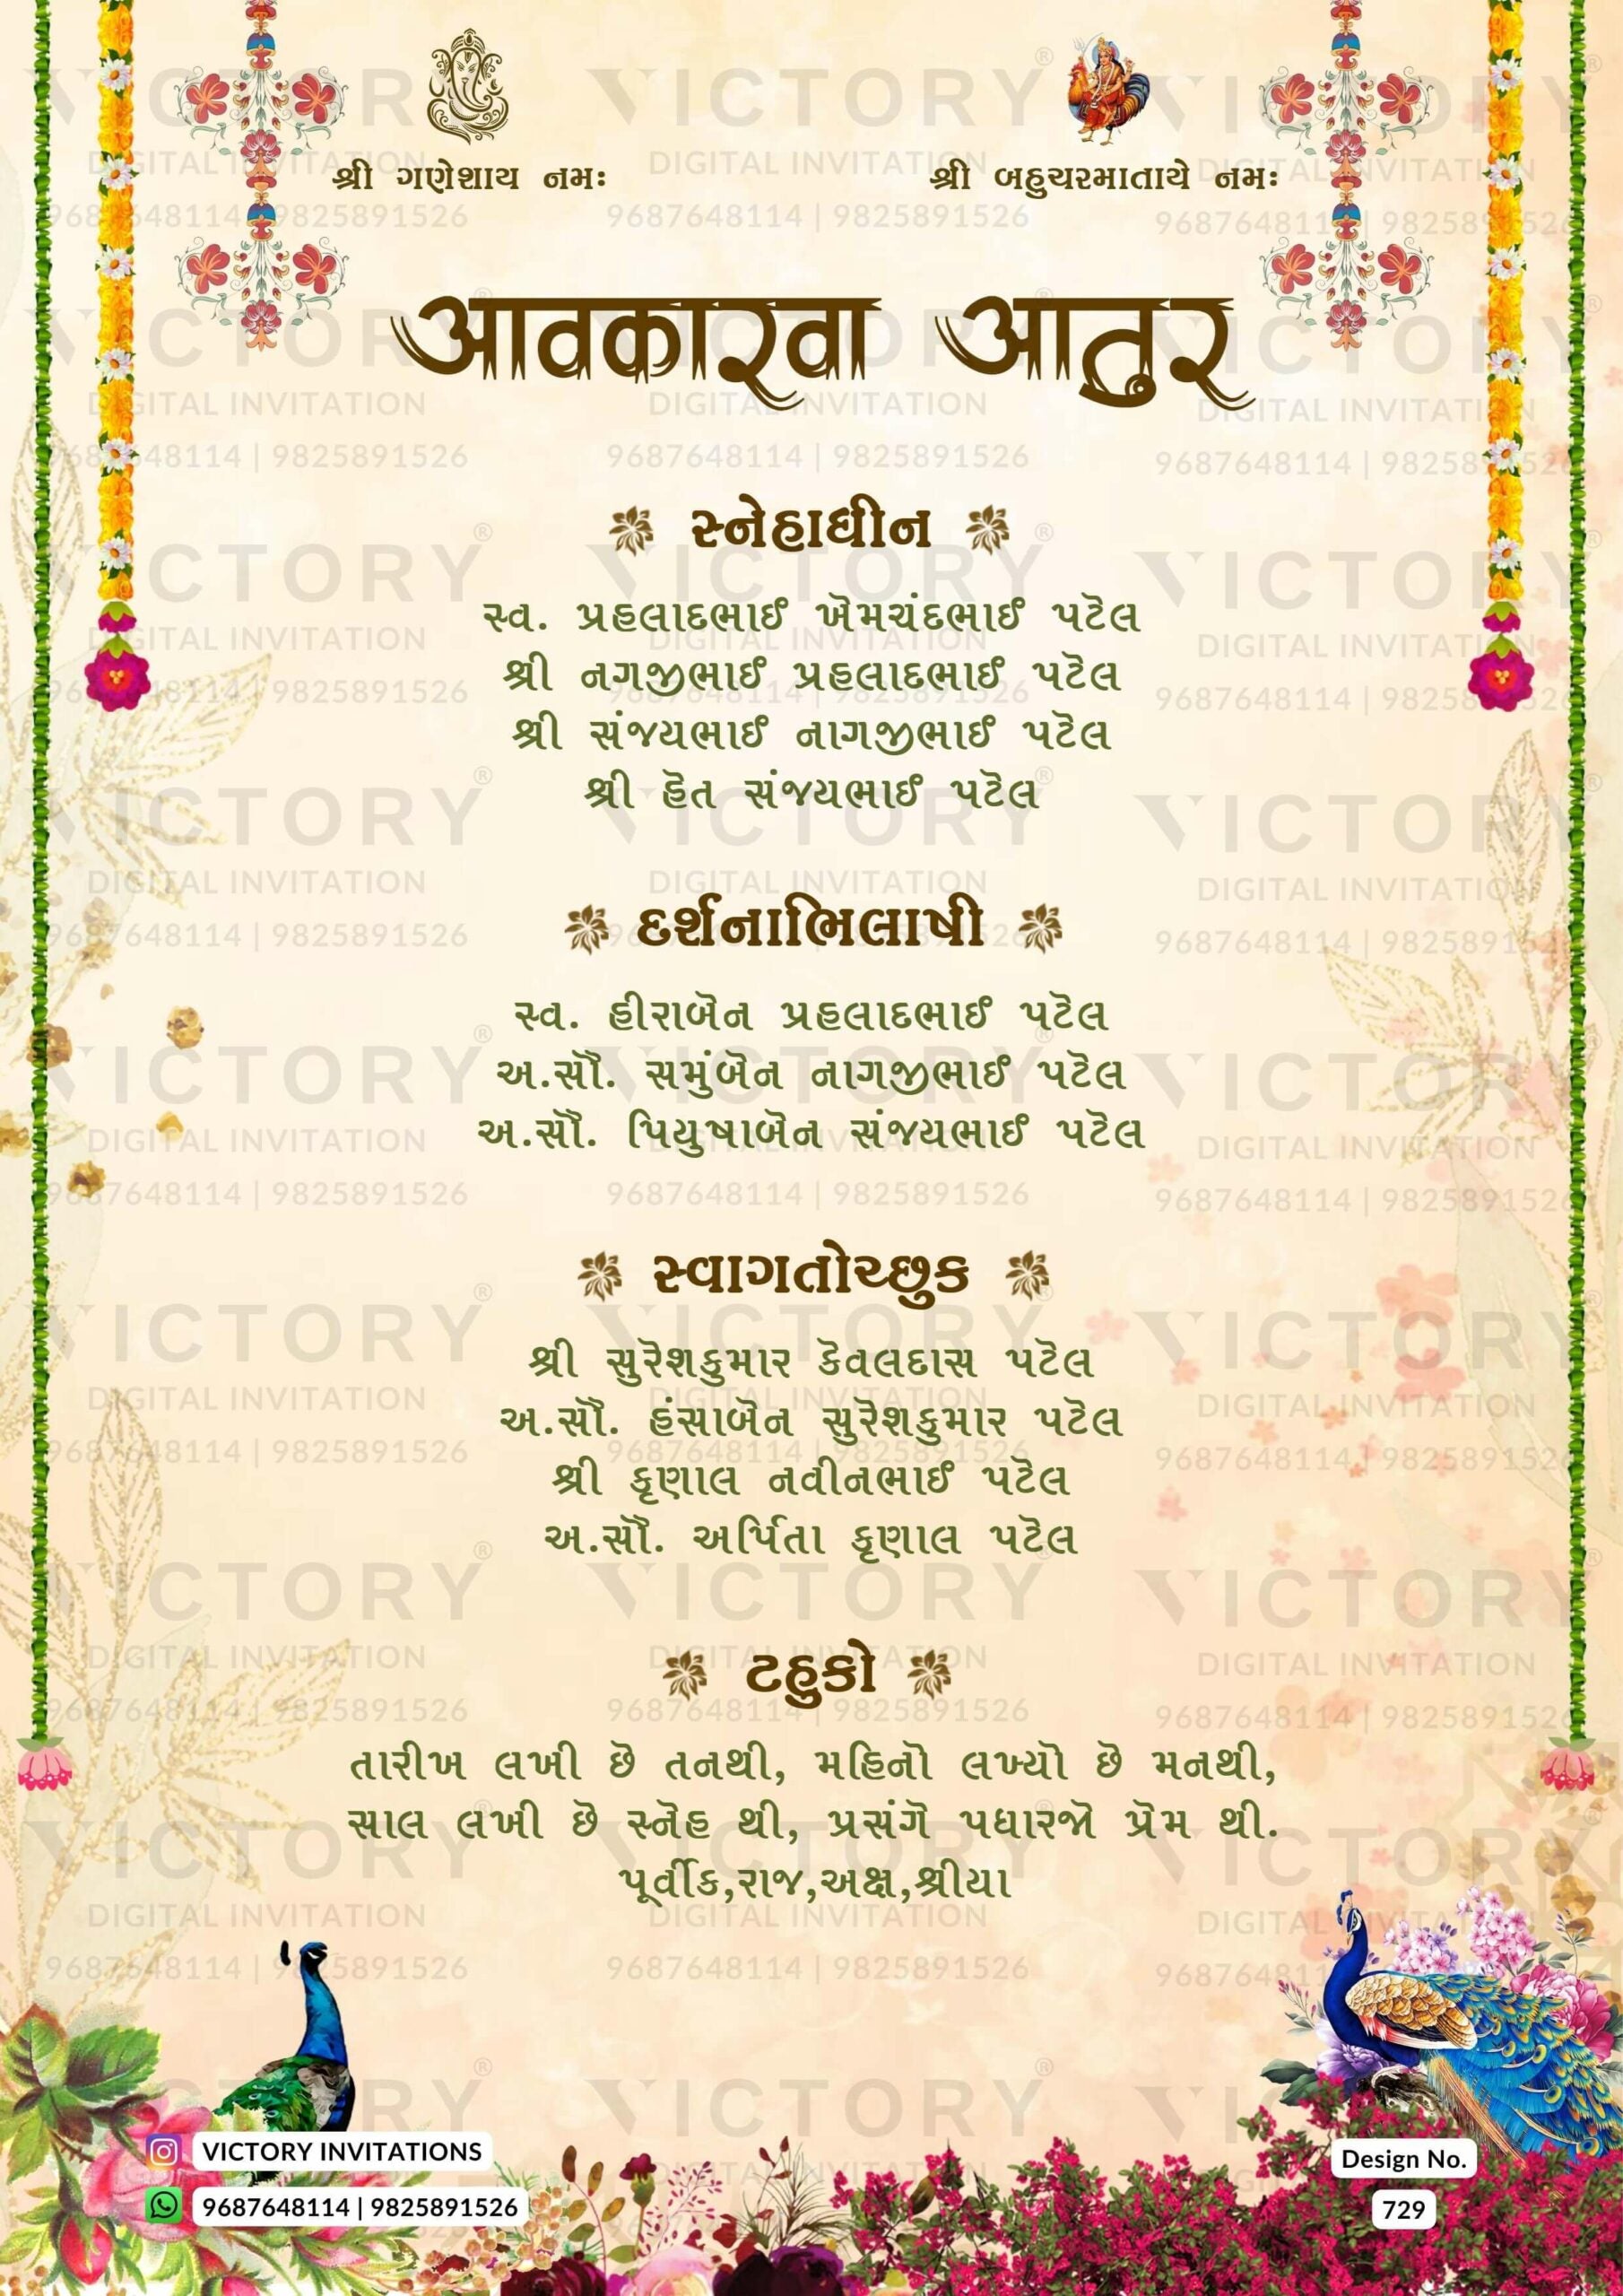 શ્રી ગણેશાય નમઃ
શ્રી બહુચરમાતાયે નમઃ
आवकारवा आतुर
સ્નેહાધીન
સ્વ. પ્રહલાદભાઈ ખેમચંદભાઈ પટેલ
શ્રી નગજીભાઈ પ્રહલાદભાઈ પટેલ
શ્રી સંજયભાઈ નાગજીભાઈ પટેલ
શ્રી હેત સંજયભાઈ પટેલ
દર્શનાભિલાષી
સ્વ. હીરાબેન પ્રહલાદભાઈ પટેલ
અ.સૌ. સમુંબેન નાગજીભાઈ પટેલ
અ.સૌ. પિયુષાબેન સંજયભાઈ પટેલ
સ્વાગતોચ્છુક
શ્રી સુરેશકુમાર કેવલદાસ પટેલ
અ.સૌ. હંસાબેન સુરેશકુમાર પટેલ
શ્રી કૃણાલ નવીનભાઈ પટેલ
અ.સૌ. અર્પિતા કૃણાલ પટેલ
ટહુકો
તારીખ લખી છે તનથી, મહિનો લખ્યો છે મનથી,
સાલ લખી છે સ્નેહ થી, પ્રસંગે પધારજો પ્રેમ થી.
પૂર્વીક,રાજ,અક્ષ,શ્રીયા
VICTORY INVITATIONS
9687648114 | 9825891526
Design No.
729
VICTORY
DIGITAL INVITATION
9687648114 | 9825891526